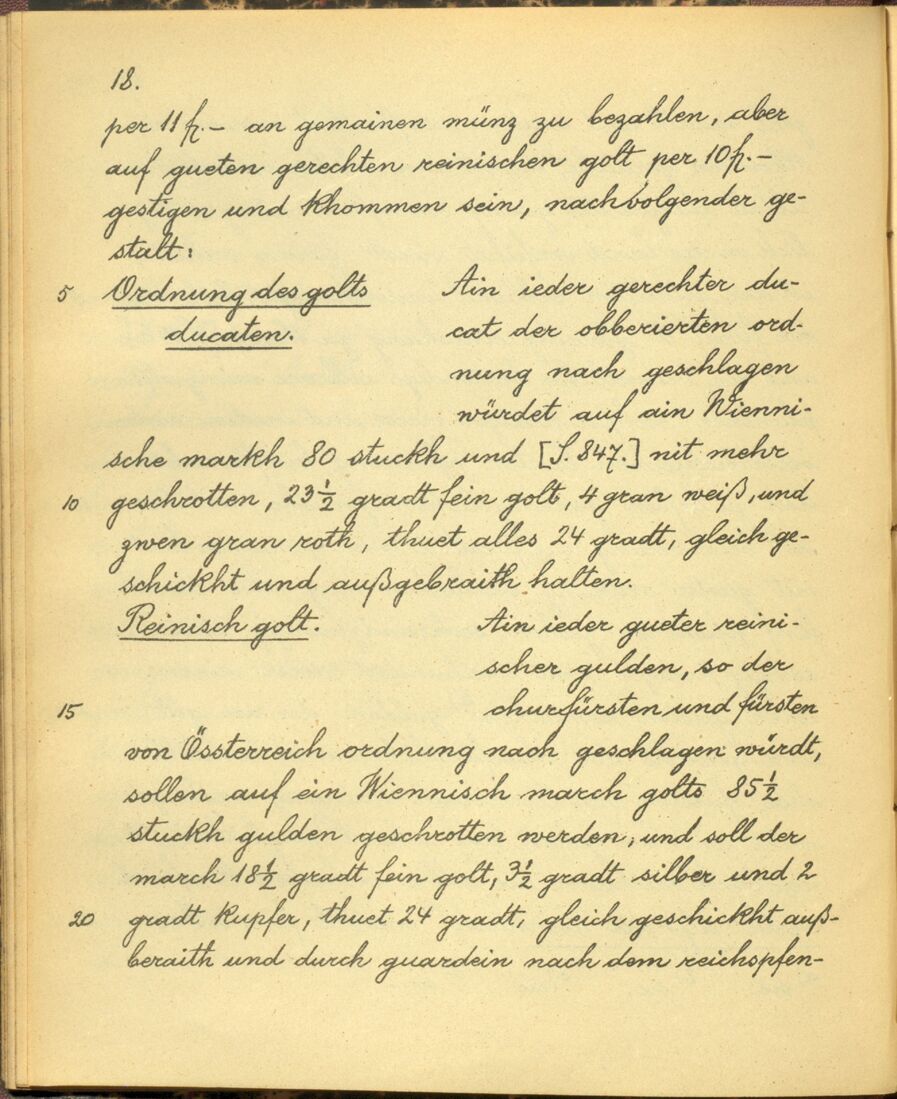 18.
per 11 fl. – an gemainen münz zu bezahlen, aber
auf gueten gerechten reinischen golt per 10 fl. –
gestigen und khommen sein, nachvolgender ge-
stalt:
5 Ordnung des golts Ain ieder gerechter du-
ducaten. cat der obberierten ord-
nung nach geschlagen
würdet auf ain Wienni-
sche markh 80 stuckh und [S. 847.] nit mehr
10 geschrotten, 23 1/2 gradt fein golt, 4 gran weiß, und
zwen gran roth, thuet alles 24 gradt, gleich ge-
schickht und außgebraith halten.
Reinisch golt. Ain ieder gueter reini-
scher gulden, so der
15 churfürsten und fürsten
von Össterreich ordnung nach geschlagen würdt,
sollen auf ein Wiennisch march golts 85 1/2
stuckh gulden geschrotten werden, und soll der
march 18 1/2 gradt fein golt, 3 1/2 gradt silber und 2
20 gradt kupfer, thuet 24 gradt, gleich geschickht auß-
beraith und durch guardein nach dem reichspfen-